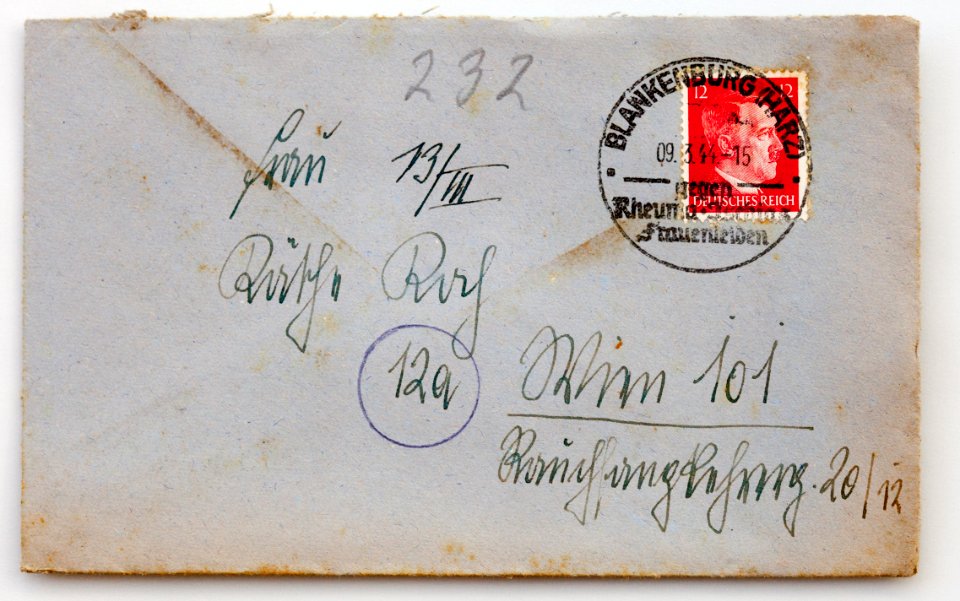 232
BLANKENBURG (HARZ)
12 12
09. 3. 44-15
gegen
Rheuma
Frauenleiden
DEUTSCHES REICH
Frau 13/III
Käthe Koch
12a
Wien 101
Rauchfangkehrerg. 20/12